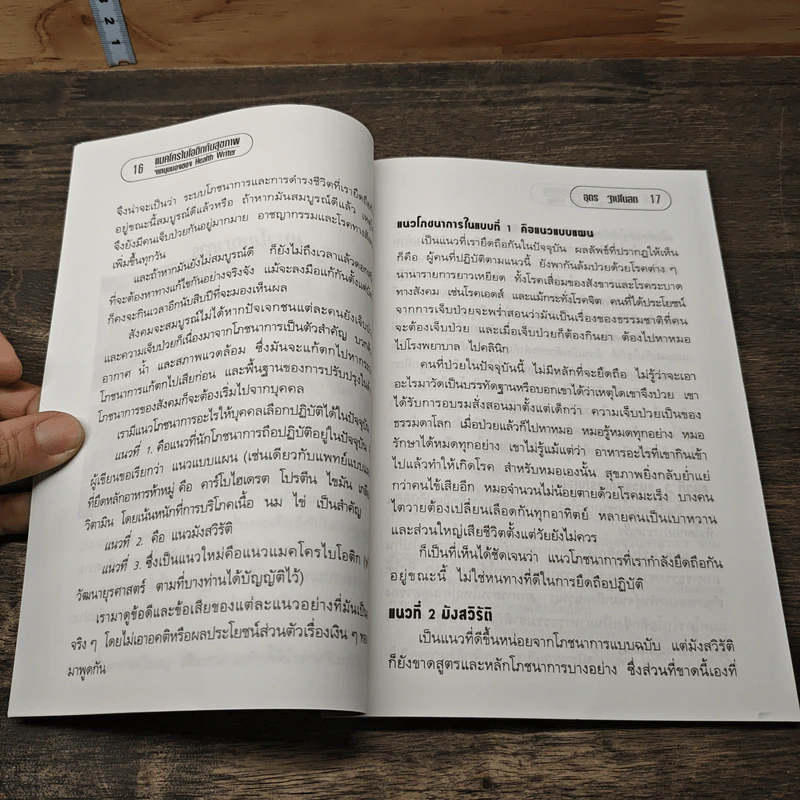 3
2
1
16 แมคโครไบโอติกกับสุขภาพ
จากมุมมองของ Health Writer
จึงน่าจะเป็นว่า ระบบโภชนาการและการดำรงชีวิตที่เรายึดถือ
อยู่ขณะนี้สมบูรณ์ดีแล้วหรือ ถ้าหากมันสมบูรณ์ดีแล้ว
จึงยังมีคนเจ็บป่วยกันอยู่มากมาย อาชญากรรมและโรคทาง
เพิ่มขึ้นทุกวัน
และถ้าหากมันยังไม่สมบูรณ์ดี ก็ยังไม่ถึงเวลาแล้วดอก
ที่จะต้องหาทางแก้ไขกันอย่างจริงจัง แม้จะลงมือแก้กันตั้งแต่
ก็คงจะกินเวลาอีกนับสิบปีที่จะมองเห็นผล
สังคมจะสมบูรณ์ไม่ได้หากปัจเจกชนแต่ละคนยังเจ็บ
และความเจ็บป่วยก็เนื่องมาจากโภชนาการเป็นตัวสำคัญ
อากาศ น้ำ และสภาพแวดล้อม ซึ่งมันจะแก้ตกไปหาก
โภชนาการแก้ตกไปเสียก่อน และพื้นฐานของการปรับปรุงใน
โภชนาการของสังคมก็จะต้องเริ่มไปจากบุคคล
เรามีแนวโภชนาการอะไรให้บุคคลเลือกปฏิบัติได้ในปัจจุบัน
แนวที่ 1. คือแนวที่นักโภชนาการถือปฏิบัติอยู่ในปัจจุบัน
ผู้เขียนขอเรียกว่า แนวแบบแผน (เช่นเดียวกับแพทย์แบบแผน
ที่ยึดหลักอาหารห้าหมู่ คือ คาร์โบไฮเดรต โปรตีน ไขมัน เกลือ
วิตามิน โดยเน้นหนักที่การบริโภคเนื้อ นม ไข่ เป็นสำคัญ
แนวที่ 2. คือ แนวมังสวิรัติ
แนวที่ 3. ซึ่งเป็นแนวใหม่คือแนวแมคโครไบโอติก
วัฒนายุรศาสตร์ ตามที่บางท่านได้บัญญัติไว้)
เรามาดูข้อดีและข้อเสียของแต่ละแนวอย่างที่มันเป็น
จริง ๆ โดยไม่เอาอคติหรือผลประโยชน์ส่วนตัวเรื่องเงิน ๆ ทอง
มาพูดกัน
อุดร ฐาปโนสถ 17
แนวโภชนาการในแบบที่ 1 คือแนวแบบแผน
เป็นแนวที่เรายึดถือกันในปัจจุบัน ผลลัพธ์ที่ปรากฏให้เห็น
ก็คือ ผู้คนที่ปฏิบัติตามแนวนี้ ยังพากันล้มป่วยด้วยโรคต่าง ๆ
นานารายการยาวเหยียด ทั้งโรคเสื่อมของสังขารและโรคระบาด
ทางสังคม เช่นโรคเอดส์ และแม้กระทั่งโรคจิต คนที่ได้ประโยชน์
จากการเจ็บป่วยจะพร่ำสอนว่ามันเป็นเรื่องของธรรมชาติที่คน
จะต้องเจ็บป่วย และเมื่อเจ็บป่วยก็ต้องกินยา ต้องไปหาหมอ
ไปโรงพยาบาล ไปคลินิก
คนที่ป่วยในปัจจุบันนี้ ไม่มีหลักที่จะยึดถือ ไม่รู้ว่าจะเอา
อะไรมาวัดเป็นบรรทัดฐานหรือบอกเขาได้ว่าเหตุใดเขาจึงป่วย เขา
ได้รับการอบรมสั่งสอนมาตั้งแต่เด็กว่า ความเจ็บป่วยเป็นของ
ธรรมดาโลก เมื่อป่วยแล้วก็ไปหาหมอ หมอรู้หมดทุกอย่าง หมอ
รักษาได้หมดทุกอย่าง เขาไม่รู้แม้แต่ว่า อาหารอะไรที่เขากินเข้า
ไปแล้วทำให้เกิดโรค สำหรับหมอเองนั้น สุขภาพยิ่งกลับย่ำแย่
กว่าคนไข้เสียอีก หมอจำนวนไม่น้อยตายด้วยโรคมะเร็ง บางคน
ไตวายต้องเปลี่ยนเลือดกันทุกอาทิตย์ หลายคนเป็นเบาหวาน
และส่วนใหญ่เสียชีวิตตั้งแต่วัยยังไม่ควร
ก็เป็นที่เห็นได้ชัดเจนว่า แนวโภชนาการที่เรากำลังยึดถือกัน
อยู่ขณะนี้ ไม่ใช่หนทางที่ดีในการยึดถือปฏิบัติ
แนวที่ 2 มังสวิรัติ
เป็นแนวที่ดีขึ้นหน่อยจากโภชนาการแบบฉบับ แต่มังสวิรัติ
ก็ยังขาดสูตรและหลักโภชนาการบางอย่าง ซึ่งส่วนที่ขาดนี้เองที่